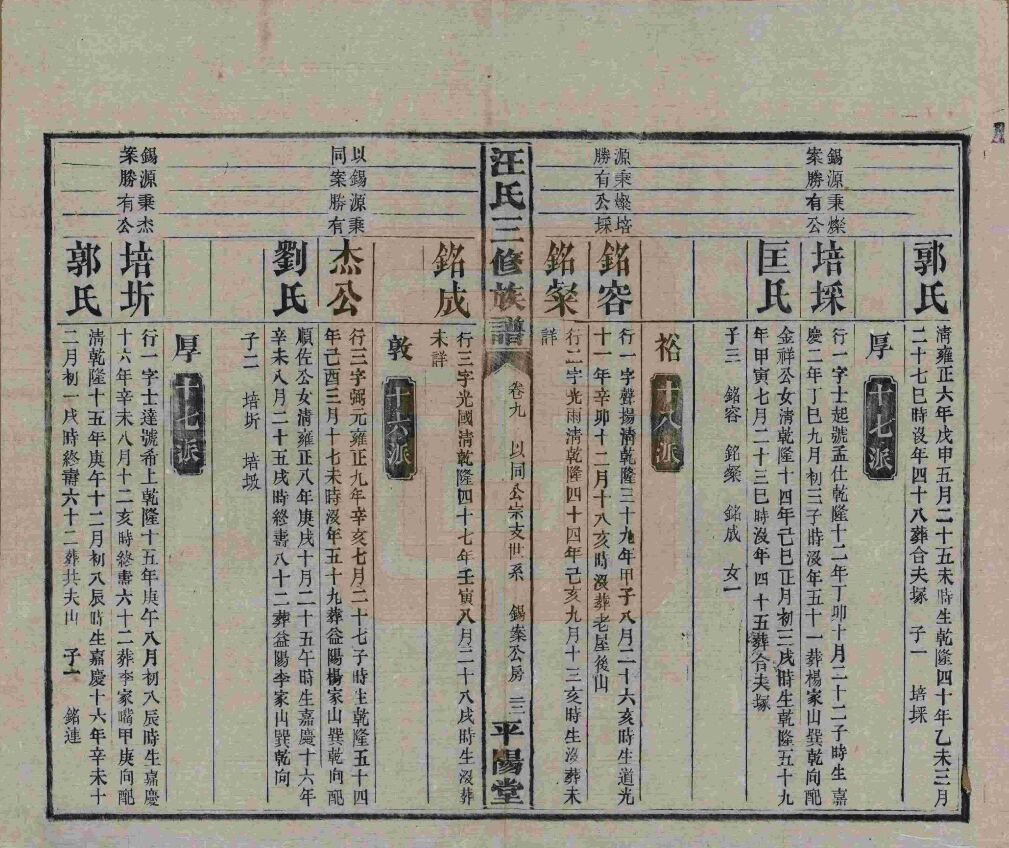 郭氏
清雍正六年戊申五月二十五未時生乾隆四十年乙未三月
二十七巳時沒年四十八葬合夫塚　子一　培埰
厚　十七派
錫源秉燦
案勝有公
培埰
行一字士起號孟仕乾隆十二年丁卯十月二十二子時生嘉
慶二年丁巳九月初三子時沒年五十一葬楊家山巽乾向配
匡氏
金祥公女清乾隆十四年己巳正月初三戌時生乾隆五十九
年甲寅七月二十三巳時沒年四十五葬合夫塚
子三　銘容　銘粲　銘成　女一
裕　十八派
源秉燦培
勝有公埰
銘容
行一字聲揚清乾隆三十九年甲子八月二十六亥時生道光
十一年辛卯十二月十八亥時沒葬老屋後山
銘粲
行二字光雨清乾隆四十四年己亥九月十三亥時生沒葬未
詳
汪氏三修族譜　卷九　以同公宗支世系　錫案公房　三二　平陽堂
銘成
行三字光國清乾隆四十七年壬寅八月二十八戌時生沒葬
未詳
敦　十六派
以錫源秉
同案勝有
杰公
行三字弼元雍正九年辛亥七月二十七子時生乾隆五十四
年己酉三月十七未時沒年五十九葬益陽楊家山巽乾向配
劉氏
順佐公女清雍正八年庚戌十月二十五午時生嘉慶十六年
辛未八月二十五戌時終壽八十二葬益陽李家山巽乾向
子二　培圻　培坂
厚　十七派
錫源秉杰
案勝有公
培圻
行一字士達號希上乾隆十五年庚午八月初八辰時生嘉慶
十六年辛未八月十二亥時終壽六十二葬李家嘴甲庚向配
郭氏
清乾隆十五年庚午十二月初八辰時生嘉慶十六年辛未十
二月初一戌時終壽六十二葬共夫山　子一　銘連